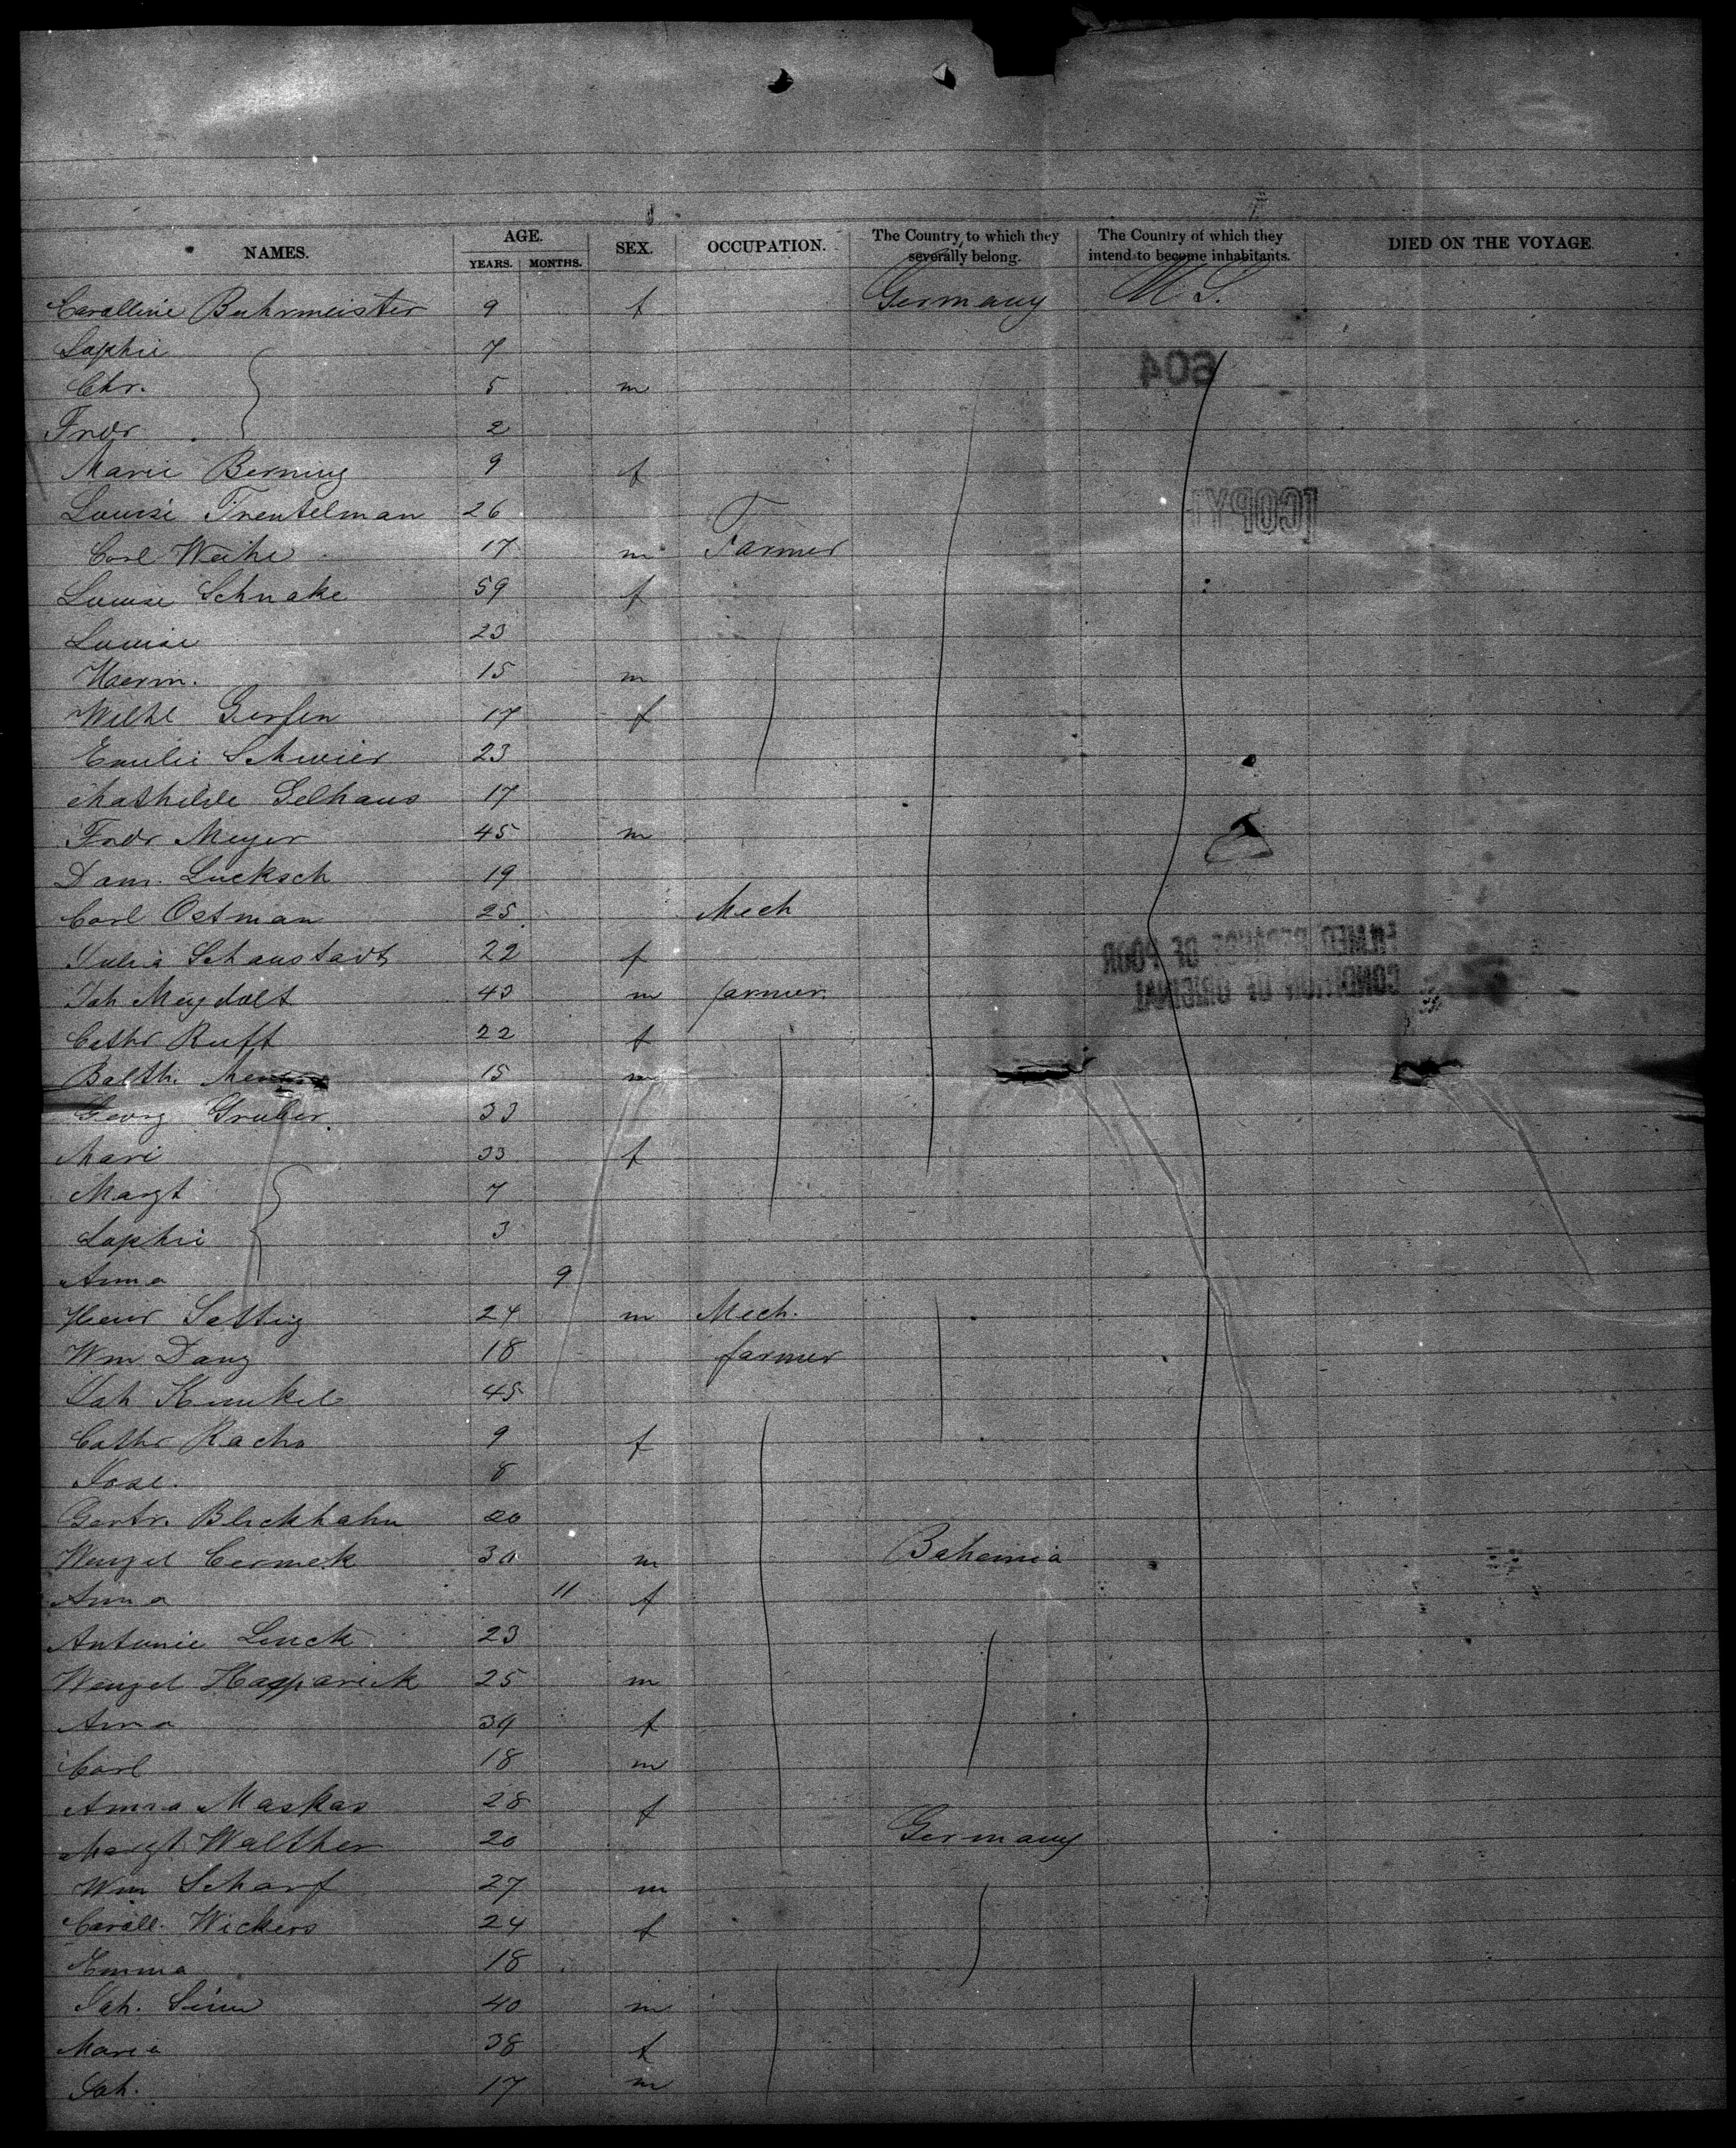 NAMES. AGE. YEARS. MONTHS. SEX. OCCUPATION. The Country to which they severally belong. The Country of which they intend to become inhabitants. DIED ON THE VOYAGE.
Caralline Buhrmeister 9 f Germany U S.
Sophie 7
Chr. 5 m
Fredr 2
Marie Berning 9 f
Louise Trentelman 26
Carl Weihe 17 m Farmer
Louise Schnake 59 f
Louise 23
Herm. 15 m
Wilhl Gerfen 17 f
Emilie Schwier 23
Mathilde Gelhaus 17
Fredr Meyer 45 m
Dan. Lucksch 19
Carl Ostman 25 Mech
Julia Schaustadt 22 f
Joh Meydolt 43 m farmer
Cathr Ruft 22 f
Balth. 15 m
Georg Gruber 33
Mari 33 f
Margt 7
Sophie 3
Anna 9
Heinr Sattig 24 m Mech.
Wm Dang 18 farmer
Joh Kunkel 45
Cathr Racho 9 f
Jose. 8
Gertr. Blickhahn 20
Wenzel Cermek 30 m Bohemia
Anna 11 f
Antonie Linck 23
Wenzel 25 m
Anna 34 f
Carl 18 m
Anna Maskas 28 f
Margt Walther 20 Germany
Wm Scharf 27 m
Caroll. Wickers 24 f
Emma 18
Joh. 40 m
Marie 38 f
Joh. 17 m
604
[COPY]
FILMED BECAUSE OF POOR
CONDITION OF ORIGINAL